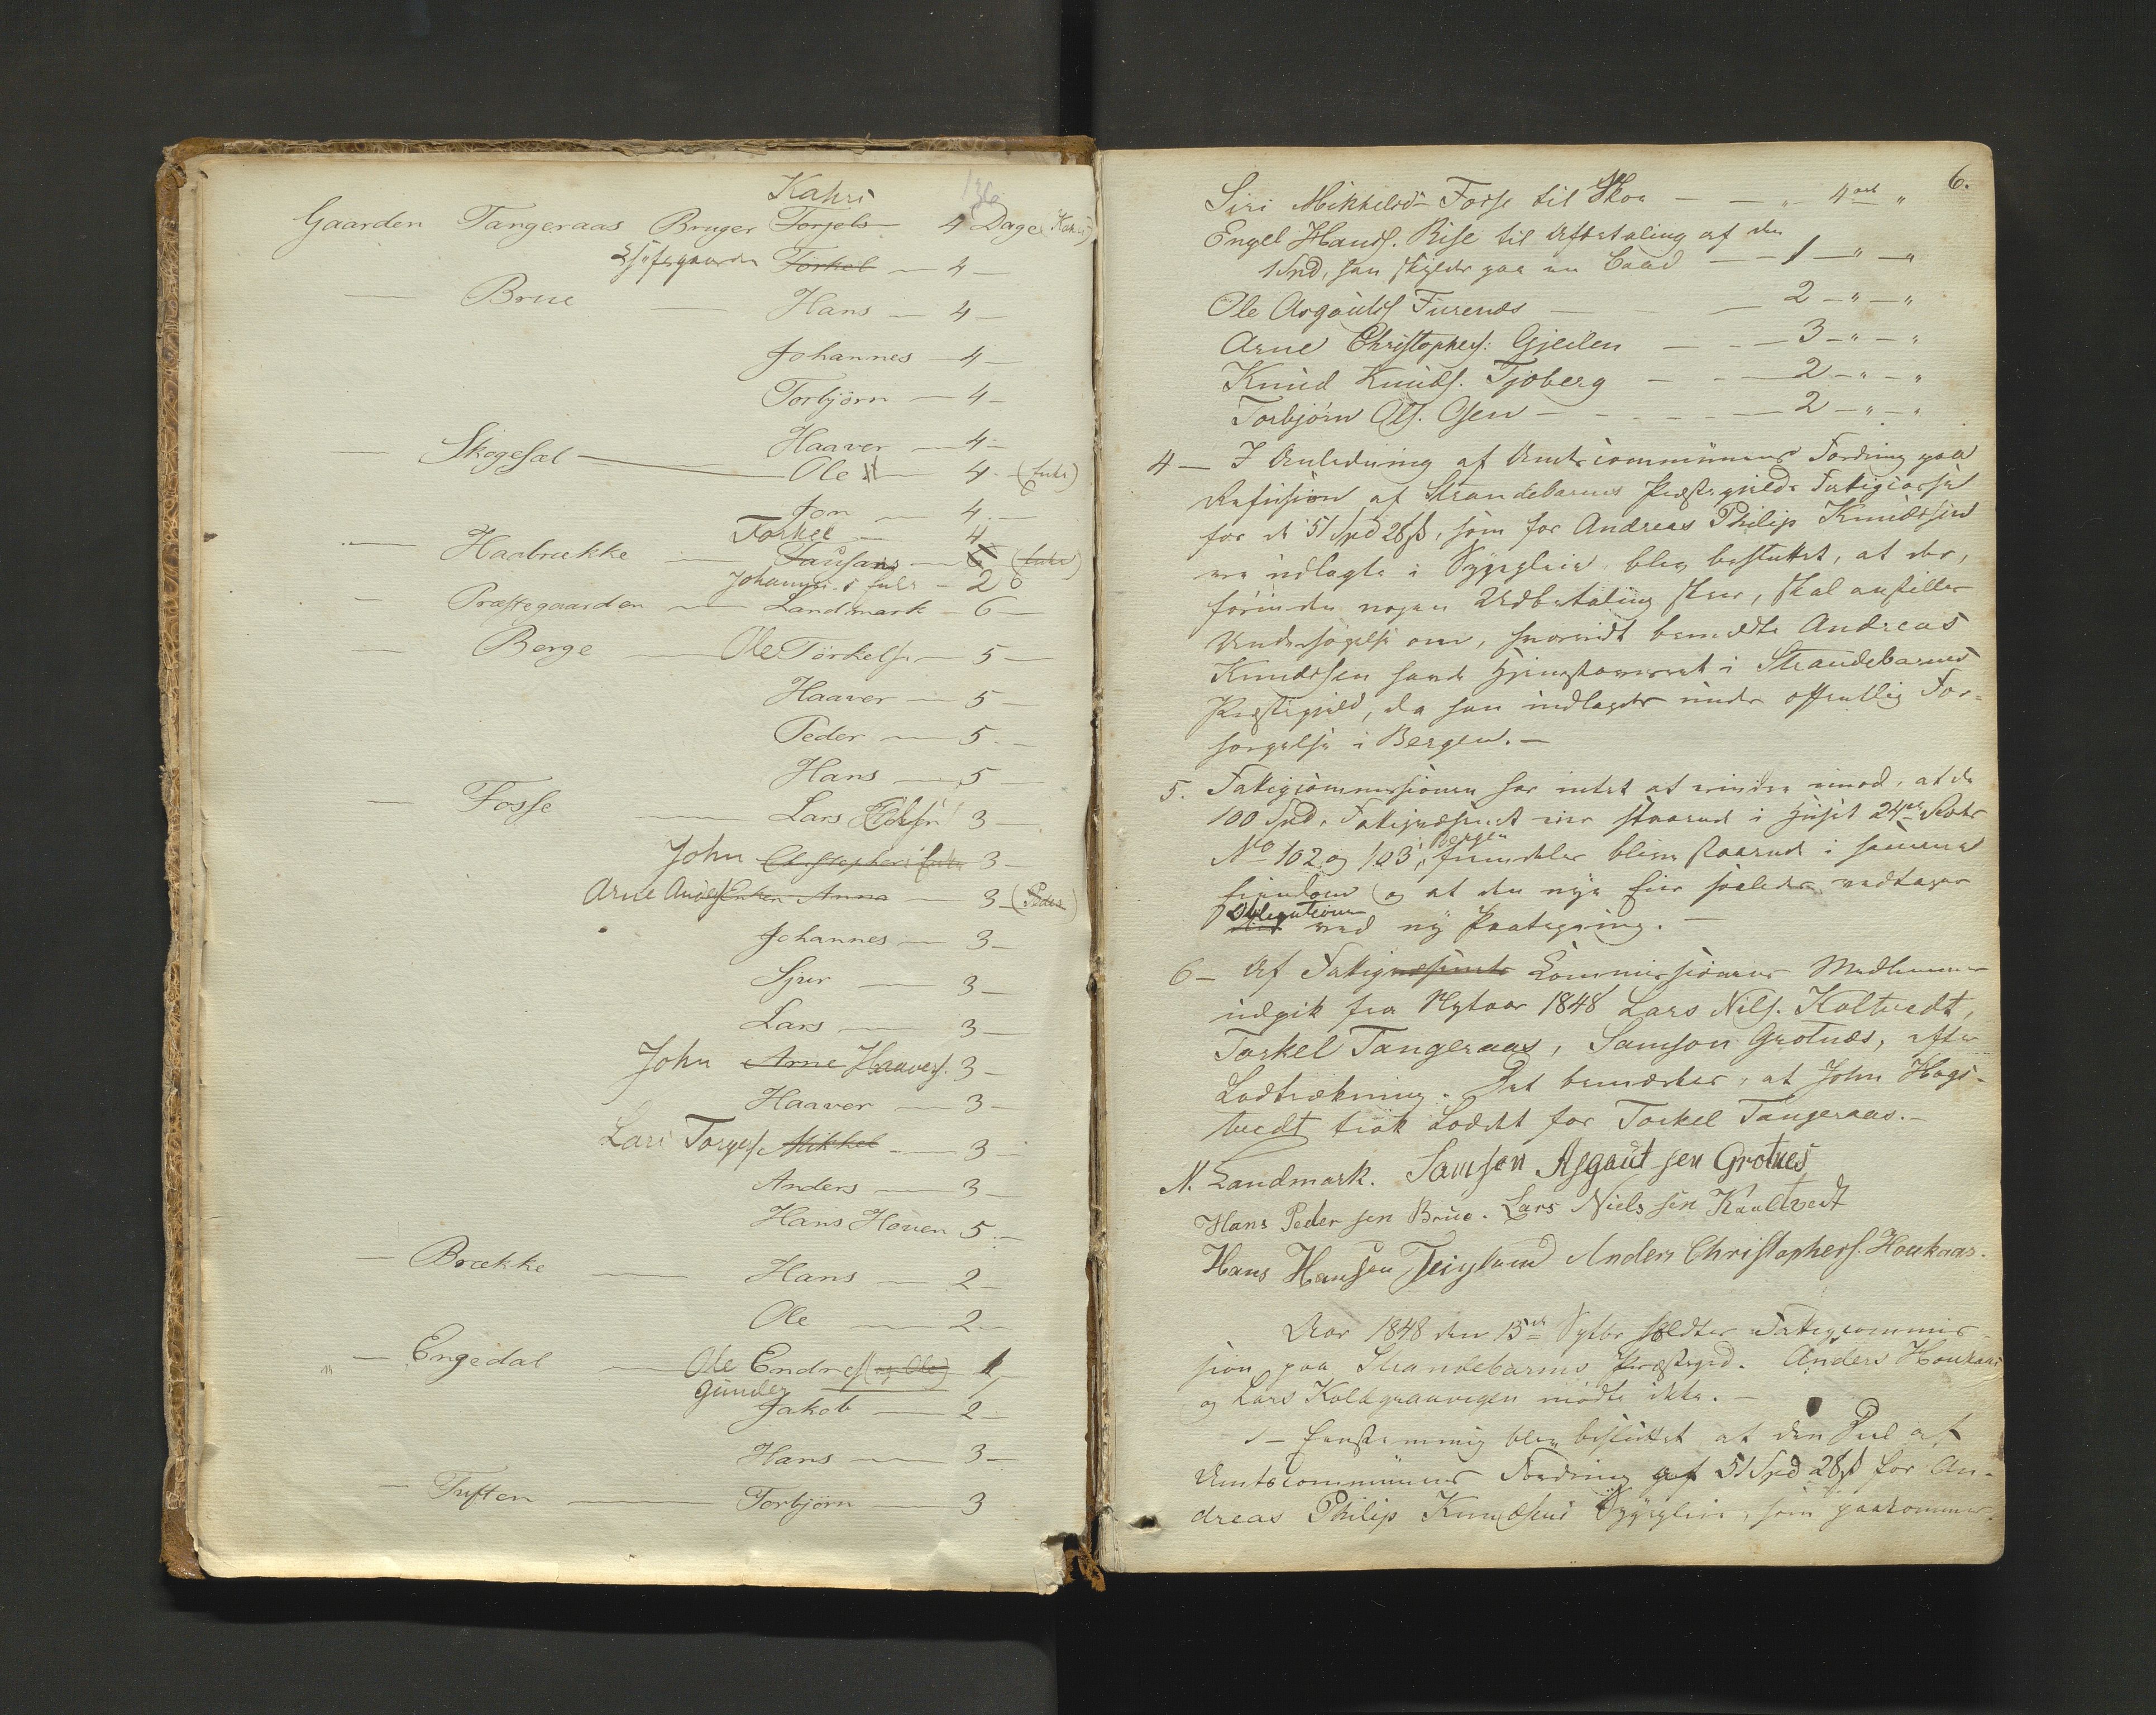 Kahri
Gaarden Tangeraas Bruger Torjels 4 Dage (Kahri)
Torkel — 4 —
— Brue — Hans — 4 —
Johannes — 4 —
Torbjörn — 4 —
Haaver — 4 —
— Skogesæl — Ole — 4 — (Enke)
Jon — 4 —
Torkel — 4
— Haabrække — Tausans — (Enke)
Johannes 2
— Præstegaarden — Landmark — 6 —
— Berge — Ole Törkels — 5 —
Haaver — 5 —
Peder — 5 —
Hans — 5 —
— Fosse — Lars 3 —
John Christophers Enke 3 —
Arne Enken Anna — 3 — (Peder)
Johannes — 3 —
Sjur — 3 —
Lars — 3 —
John Arne Haavers. 3 —
Haaver — 3 —
Lars Torgs. Mikkel — 3 —
Anders — 3 —
Hans Houen 5 —
— Brække — Hans — 2 —
Ole — 2 —
— Engedal — Ole Endres (og Ole) 1
Gunder
Jakob — 2 —
Hans — 3 —
— Tuften — Torbjörn — 3
6.
Siri Mikkelsd. Fosse til Skoe — — " 4 ort "
Engel Hansd. Rise til Afbetaling af den
1 Spd, han skylder paa en Baad — — 1 — " — "
Ole Asgautss Furenæs — — 2 — " — "
Arne Christophers: Gjeilen — — 3 — " — "
Knud Knuds. Tjoberg — — 2 — " — "
Torbjörn Ols. Osen — — 2 — " — "
4 — I Anledning af Amtscommünens Fordring paa
Refusion af Strandebarms Præstegjelds Fattigcasse
for de 51 Spd 28 ß, som for Andreas Philip Knudssen
ere udlagte i Sygepleie blev besluttet, at der,
förinden nogen Udbetaling skeer, skal anstilles
Undersögelse om, hvorvidt bemeldte Andreas
Knudssen havde Hjemstavnsret i Strandebarms
Præstegjeld, da han indlagdes under offentlig For-
sorgelse i Bergen. —
5. Fattigcommissionen har intet at erindre imod, at de
100 Spd, Fattigvæsenet eier staaende i Huset 24de Rode
No 102 og 103 i Bergen, fremdeles blive staaende i samme
Eiendom og at den nye Eier saaledes vedtager
Obligationen ved ny Paategning. —
6 — Af Fattigvæsenets Commissionens Medlemmer
udgik fra Nytaar 1848 Lars Nils. Koltvedt,
Torkel Tangeraas, Samson Grotnæs, efter
Lodtrækning. Det bemærkes, at John Hegi-
tvedt trak Loddet for Torkel Tangeraas. —
N. Landmark. Samson Asgaut sen Grotnes
Hans Peder sen Brue. Lars Niels sen Kaultvedt
Hans Hansen Teigland Anders Christophers. Haukaas.
Aar 1848 den 13de holdtes Fattigcommis-
sion paa Strandebarms Præstegrd. Anders Haukaas
og Lars Koldgraavigen mødte ikke. —
1 — Eenstemmig blev besluttet at den Deel af
Amtscommünens Fordring af 51 Spd 28 ß for An-
dreas Philip Knudsens Sygepleie, som paakommer